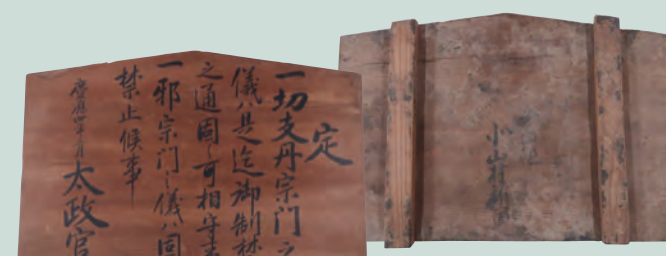 定
一切支丹宗門之
儀ハ是迄御制禁
之通固可相守
一邪宗門之儀ハ固
禁止候事
慶應四年三月
太政官
小山村